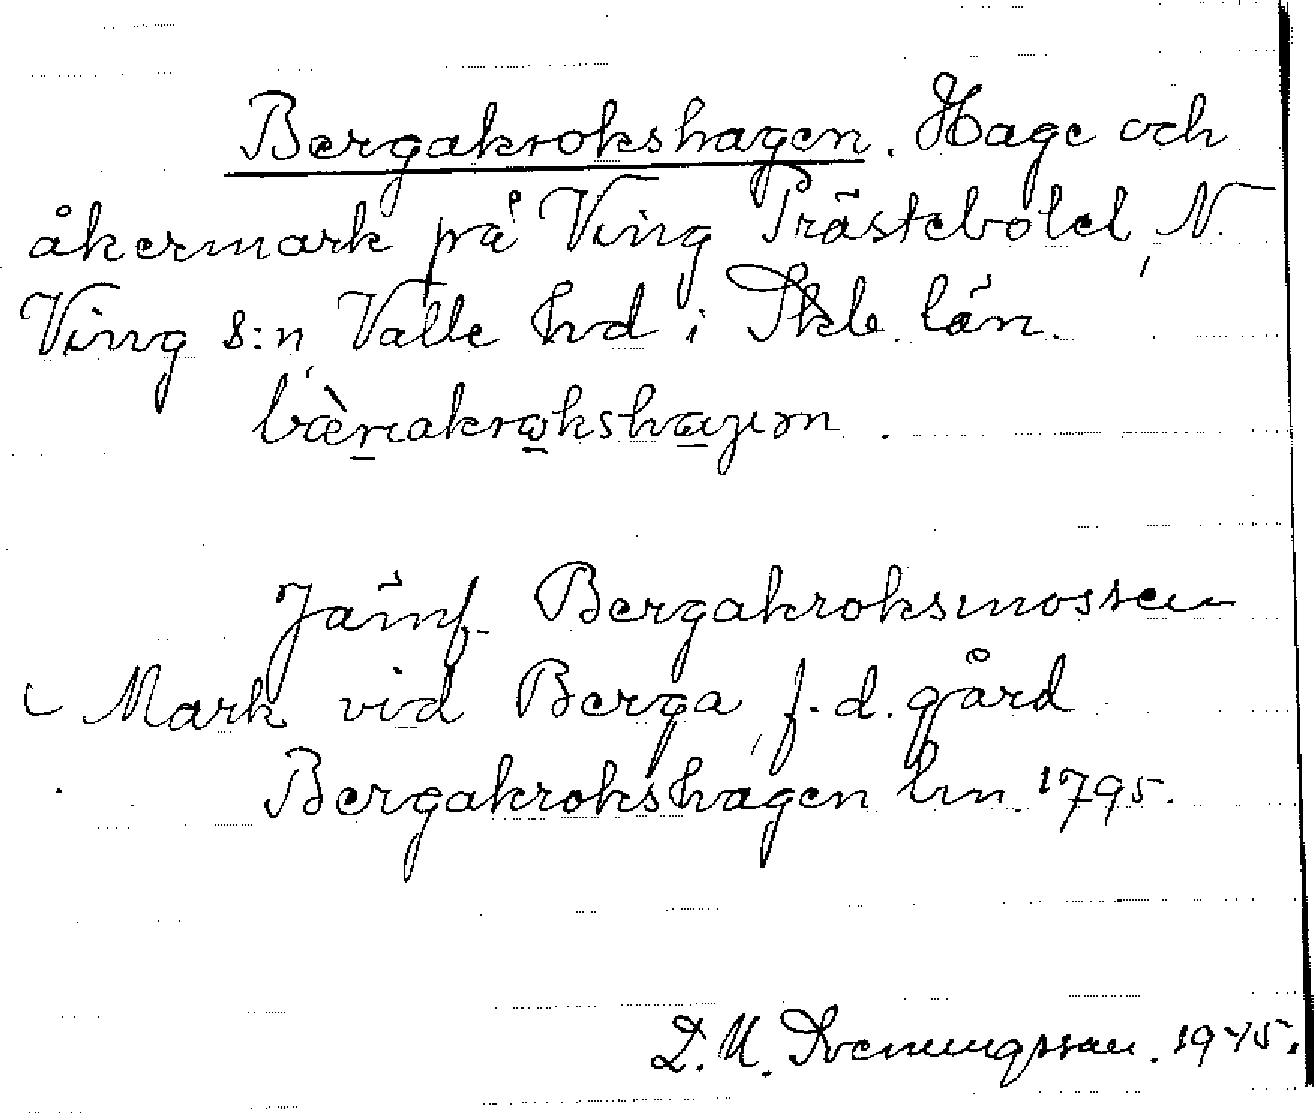 Bergakrokshagen. Hage och
åkermark på Ving Prästebolel, N.
Ving s:n, Valle hd i Skb. län.
bærıakrokshaγεn.
Jämf. Bergakroksmossen
Mark vid Berga, f. d. gård
Bergakrokshagen lm. 1795.
D. M. Sveningsson. 1945.